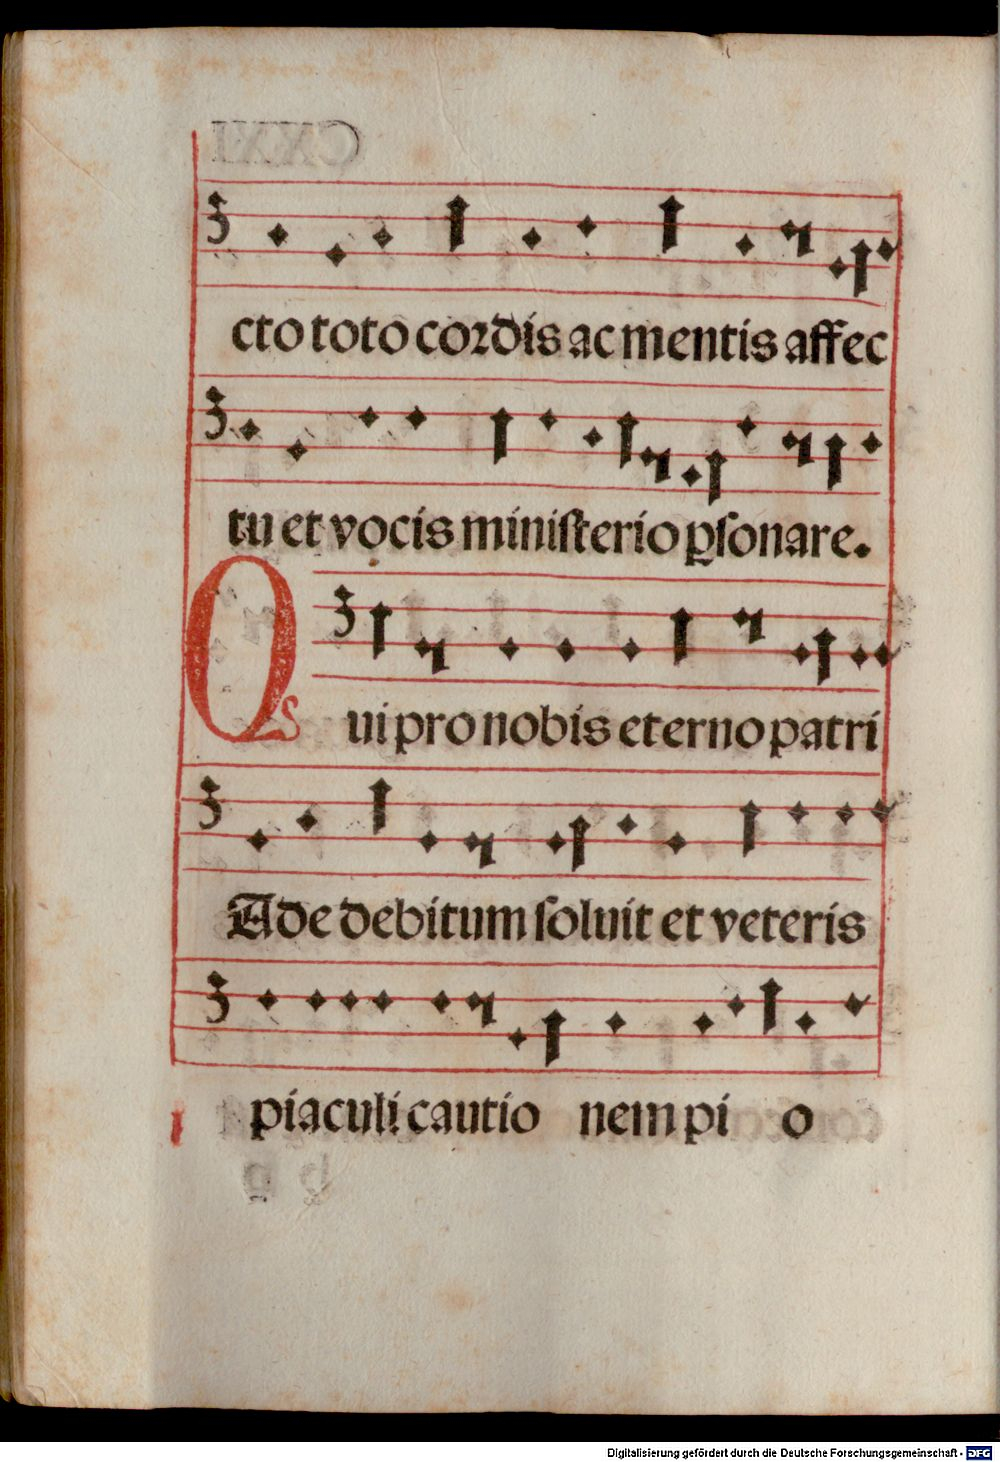 cto toto coꝛdis ac mentis affec
tu et vocis miniſterio ꝑſonare.
Qui pro nobis eterno patri
Ade debitum ſoluit et veteris
piaculi cautio nem pi o
Digitalisierung gefördert durch die Deutsche Forschungsgemeinschaft - DFG